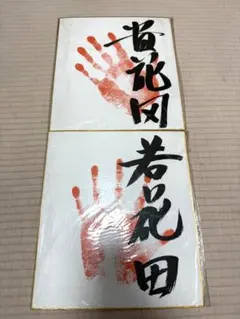 貴花田
若花田